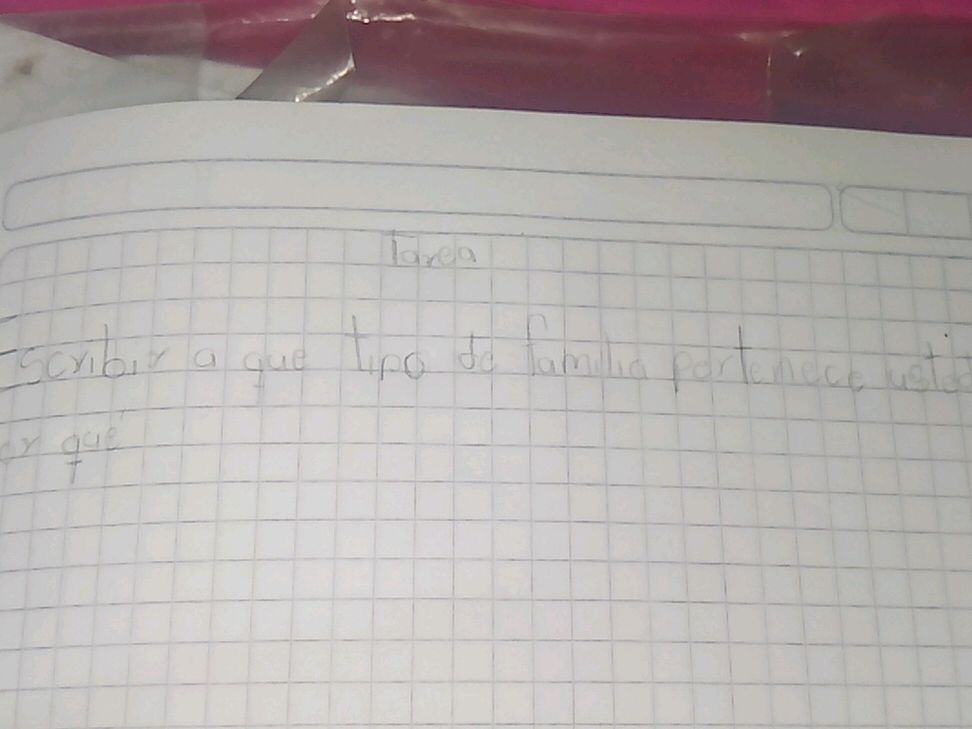 Tarea
Escribir a que tipo de familia pertenece usted
por qué